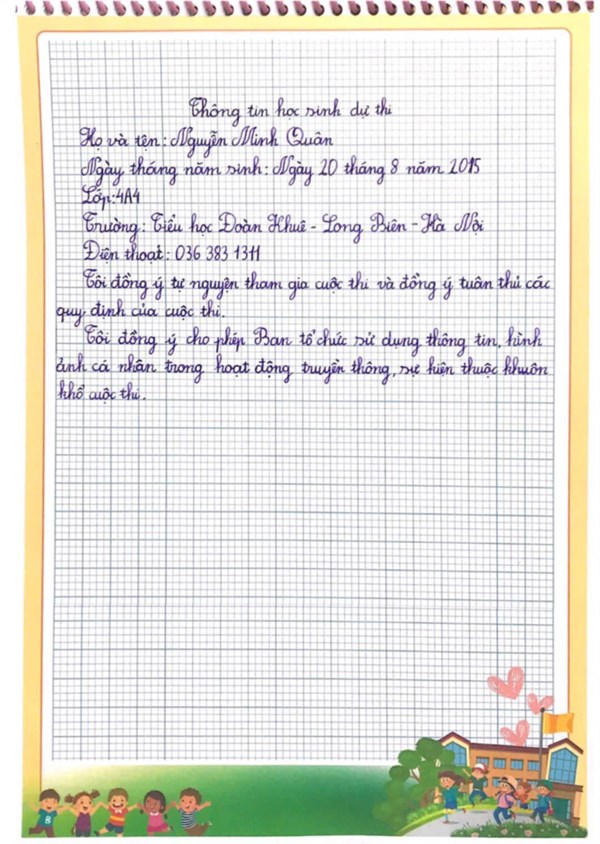 Thông tin học sinh dự thi
Họ và tên: Nguyễn Minh Quân
Ngày tháng năm sinh: Ngày 20 tháng 8 năm 2015
Lớp: 4A4
Trường: Tiểu học Đoàn Khuê - Long Biên - Hà Nội
Điện thoại: 036 383 1311
Tôi đồng ý tự nguyện tham gia cuộc thi và đồng ý tuân thủ các
quy định của cuộc thi.
Tôi đồng ý cho phép Ban tổ chức sử dụng thông tin, hình
ảnh cá nhân trong hoạt động truyền thông, sự kiện thuộc khuôn
khổ cuộc thi.